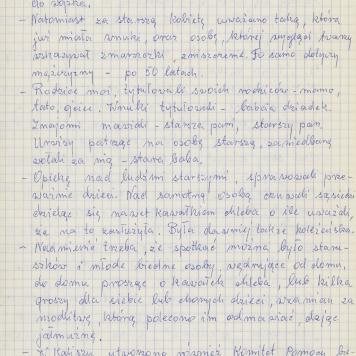 do wojska.
- Natomiast za starszą kobietę uważano taką, która
już miała wnuki, oraz osobę, której wygląd twarzy
wskazywał zmarszczki, zniszczenie. To samo dotyczy
mężczyzny - po 50 latach.
- Rodzice moi, tytułowali swoich rodziców - mamo,
tato, ojciec. Wnuki tytułowali - babcia dziadek
Znajomi mawiali - starsza pani, starszy pan.
Urwisy patrząc na osobę starszą, zaniedbaną
wołali za nią - stara baba.
- Opiekę nad ludźmi starszymi, sprawowali prze-
ważnie dzieci. Nad samotną osobą czuwali sąsiedzi
dzieląc się nawet kawałkiem chleba o ile uważali,
że na to zasłużyła. Była dawniej także koleżeństwo.
- Nadmienić trzeba, że spotkać można było staru-
szków i młode biedne osoby, wędrujące od domu,
do domu prosząc o kawałek chleba, lub kilka
groszy dla siebie lub chorych dzieci, wzamian za
modlitwę, którą polecono im odmawiać, dając
jałmużnę.
- W Kaliszu utworzono również Komitet Pomocy